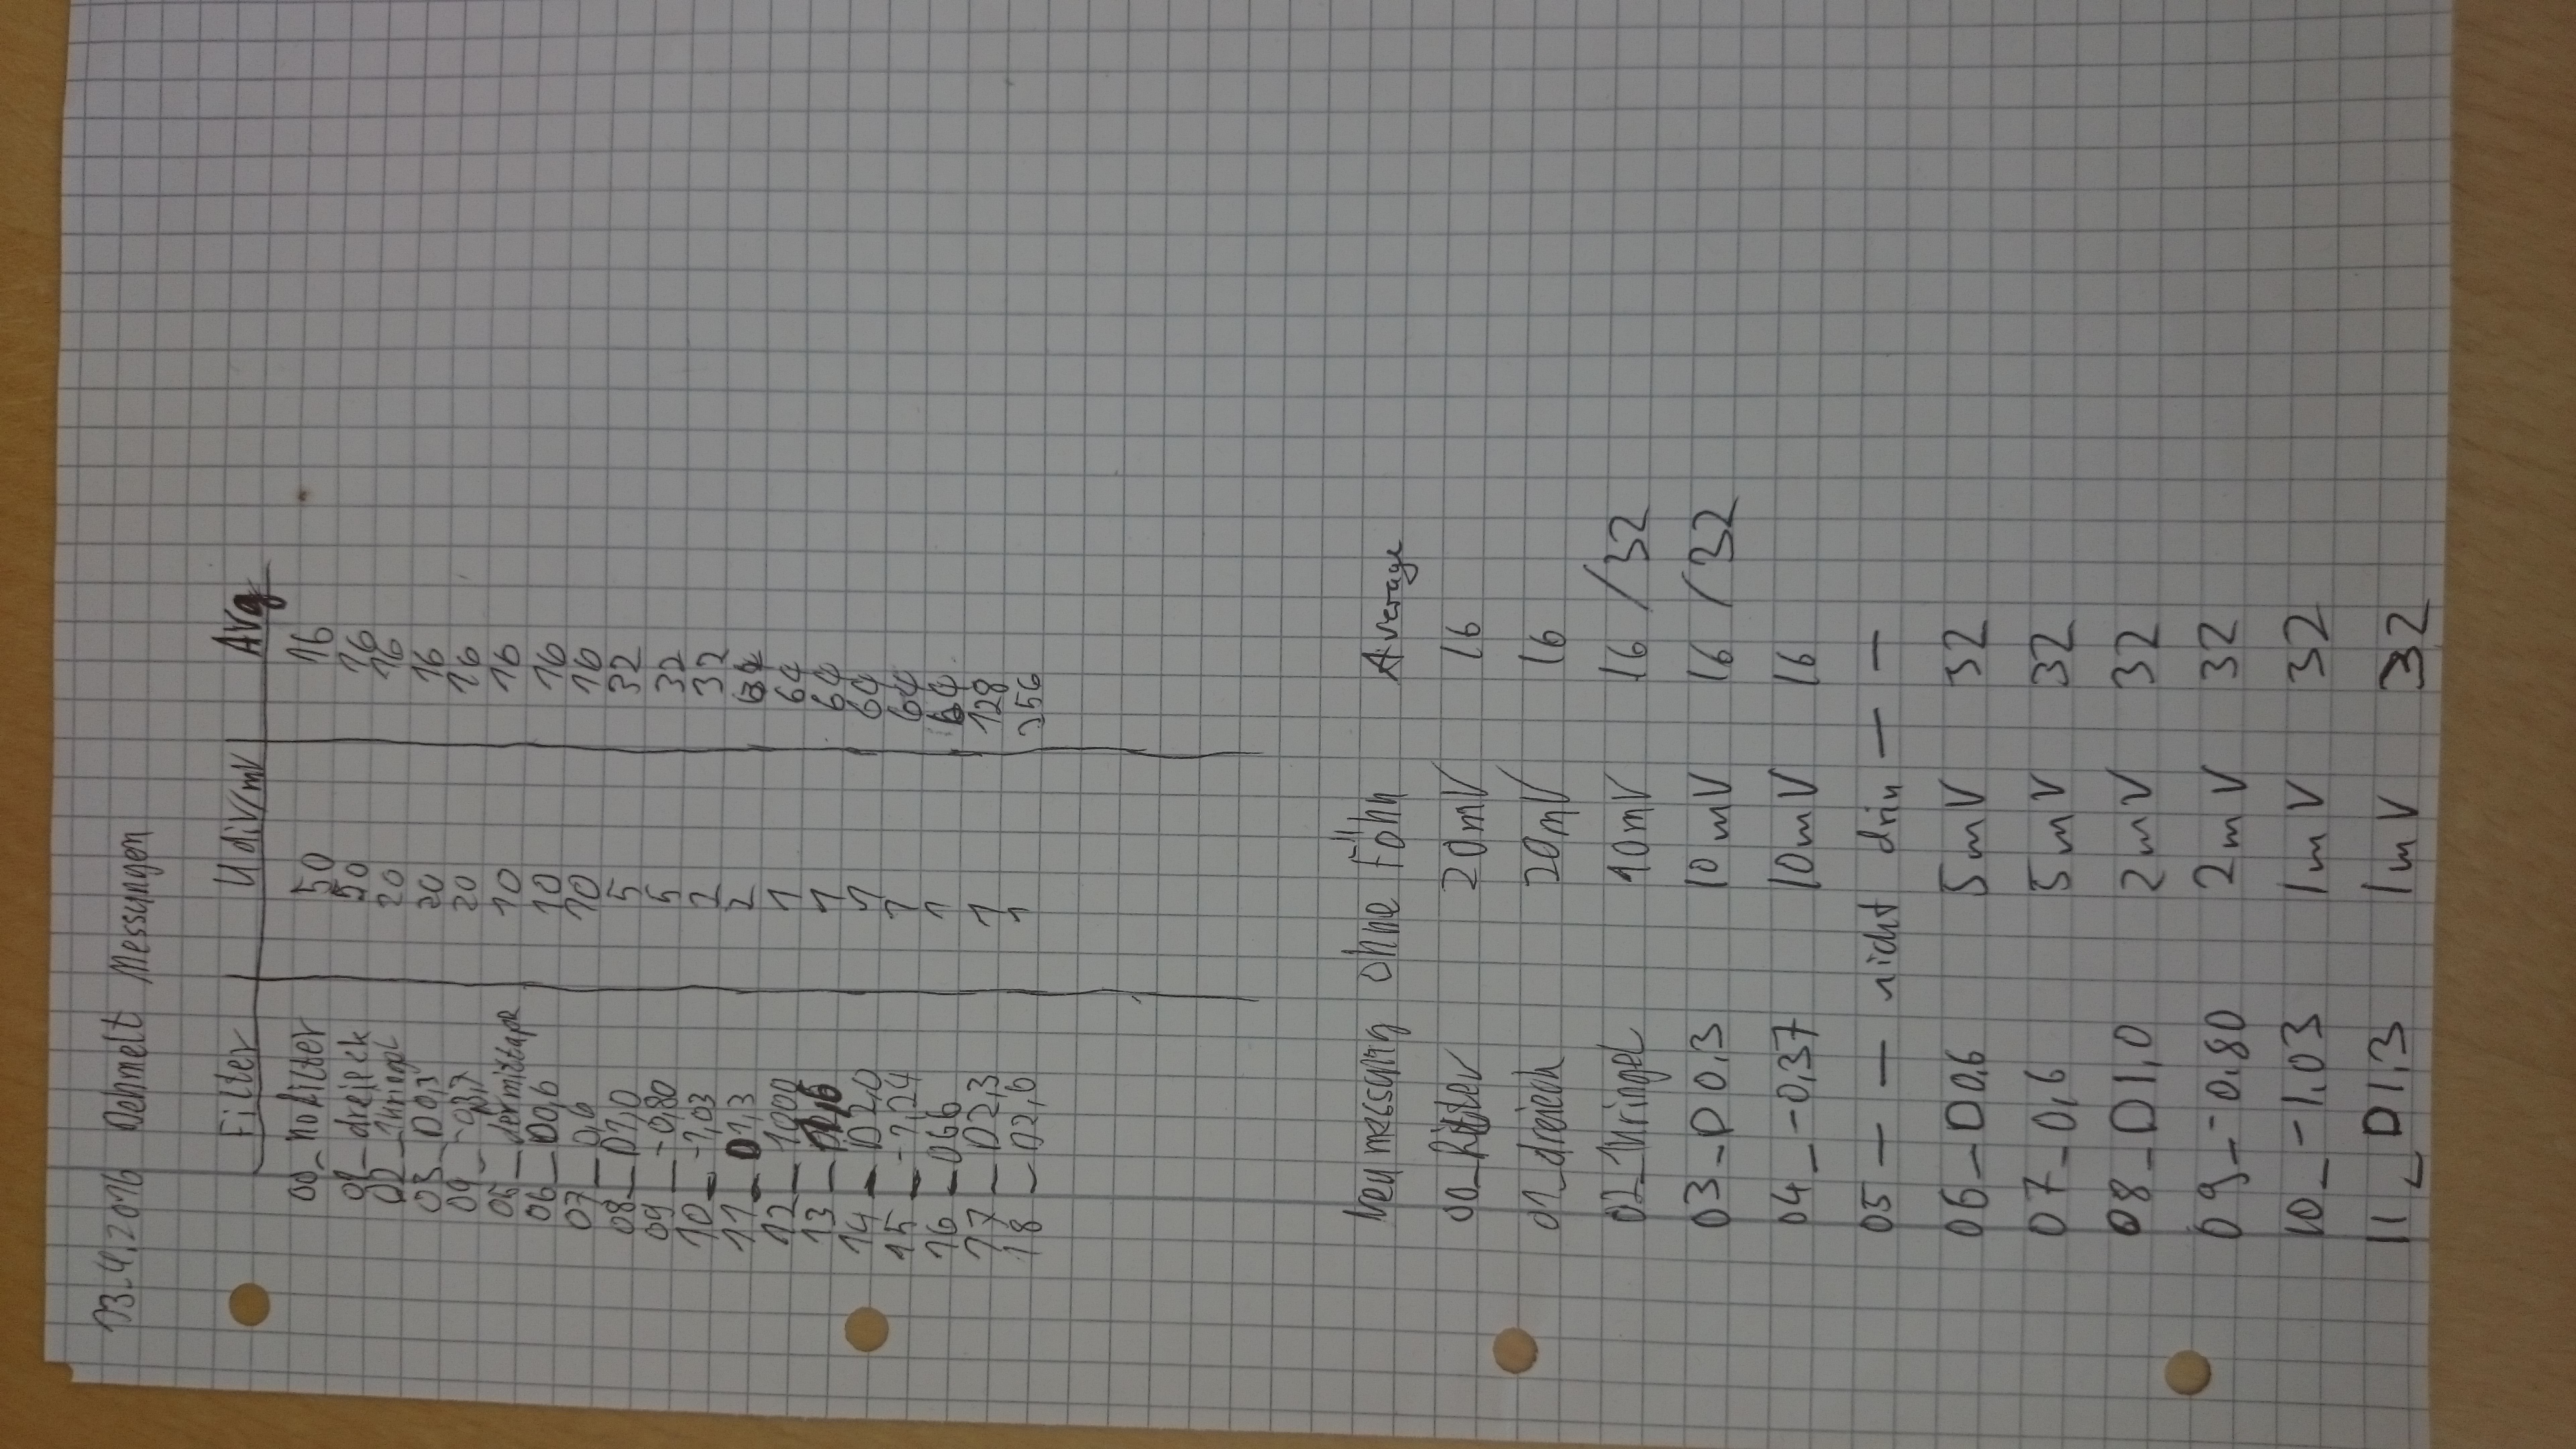 13.4.2016 Dehmelt Messungen
Filter U div/mV Avg
00_nofilter 50 16
01_dreieck 50 16
02_1kringel 20 16
03_D0,3 20 16
04_-0,37 20 16
05_dermittape 10 16
06_D0,6 10 16
07_0,6 10 16
08_D1,0 5 32
09_-0,80 5 32
10_-1,03 2 32
11_D1,3 2 64
12_1000 1 64
13_D1,6 1 64
14_D2,0 1 64
15_-1,24 1 64
16_066 1 64
17_D2,3 1 128
18_D2,6 1 256
Neumessung ohne Föhn Average
00_ 20mV 16
01_dreieck 20mV 16
02_1kringel 10mV 16 /32
03_D0,3 10mV 16 /32
04_-0,37 10mV 16
05 — — nicht drin — —
06_D0,6 5mV 32
07_0,6 5mV 32
08_D1,0 2mV 32
09_-0,80 2mV 32
10_-1,03 1mV 32
11_D1,3 1mV 32